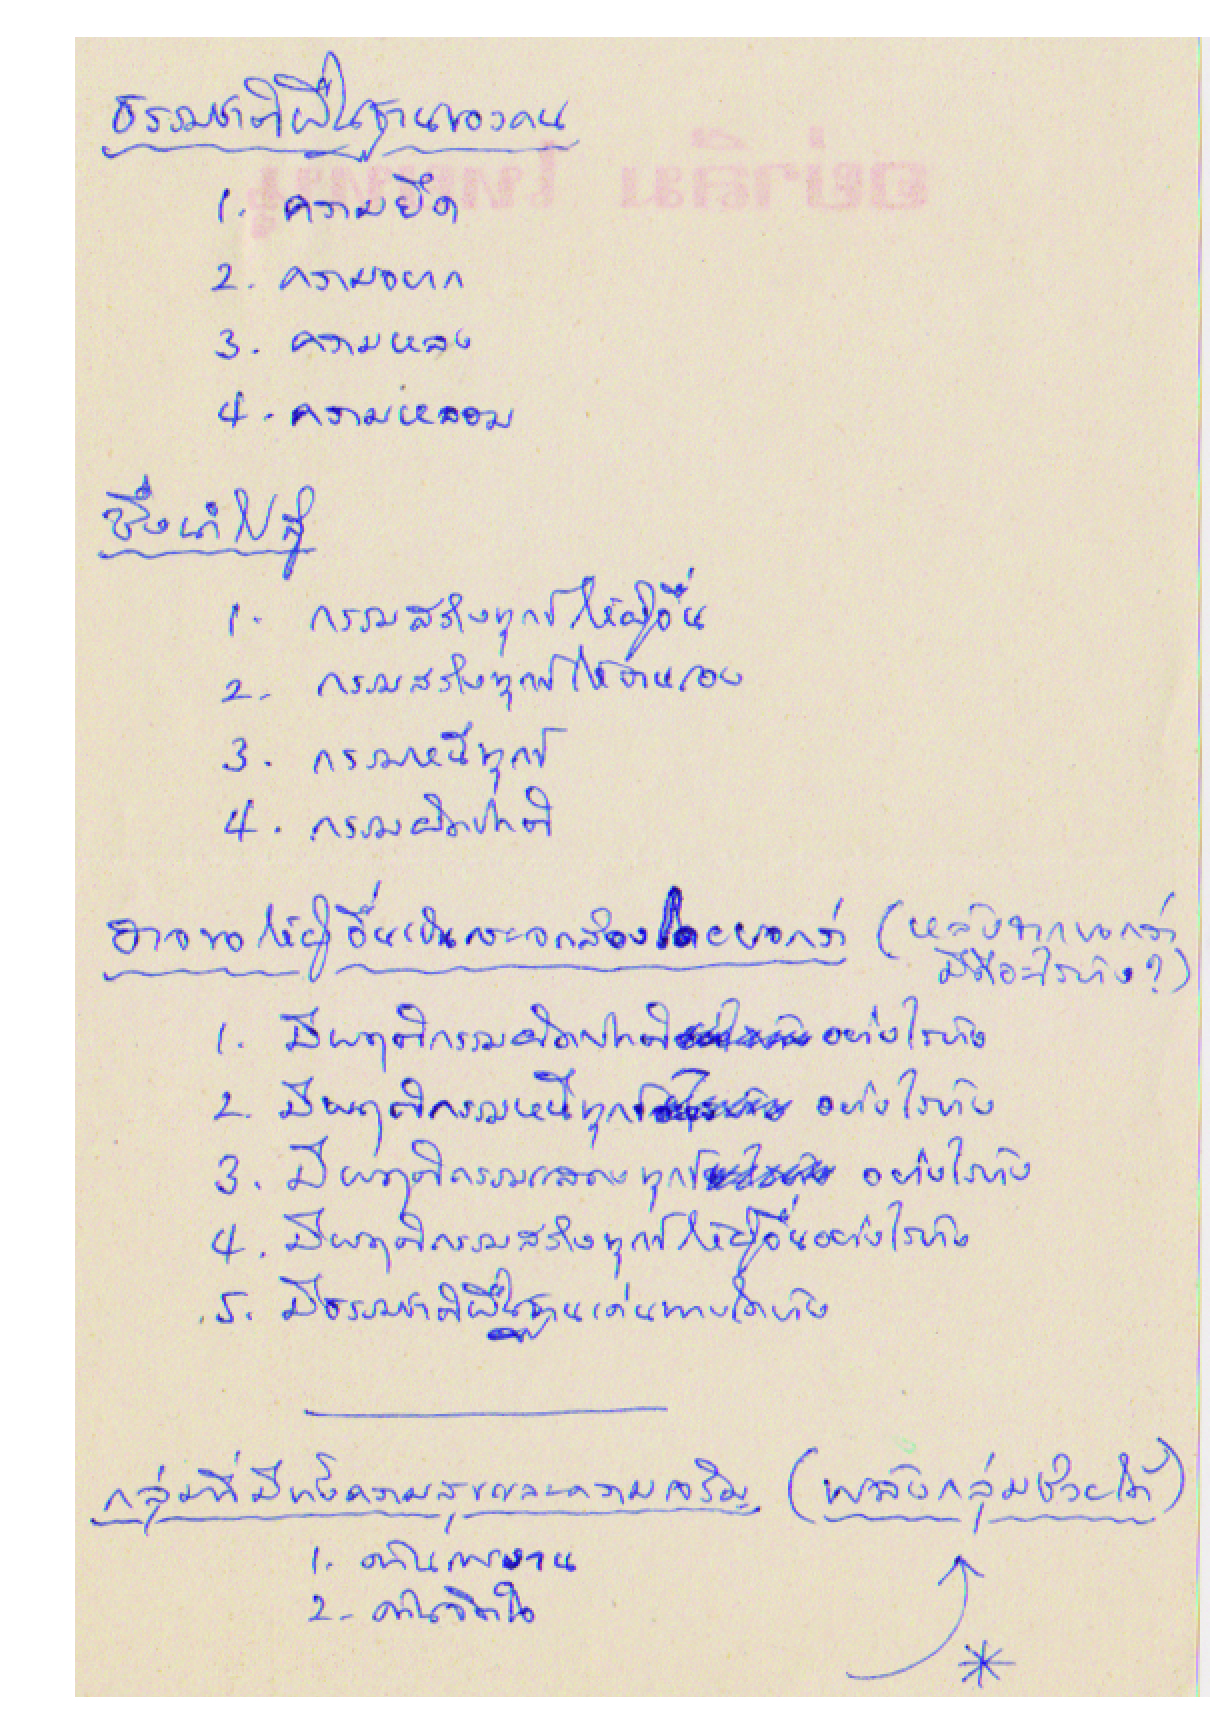 ธรรมชาติพื้นฐานของคน
1. ความยึด
2. ความอยาก
3. ความหลง
4. ความหลอม
ซึ่งนำไปสู่
1. กรรมสร้างทุกข์ให้ผู้อื่น
2. กรรมสร้างทุกข์ให้ตนเอง
3. กรรมหนีทุกข์
4. กรรมผิดปกติ
อาจขอให้ผู้อื่นเป็นกระจกส่องโดยบอกว่า (หลังจากบอกว่า
มีดีอะไรบ้าง?)
1. มีพฤติกรรมผิดปกติ อย่างไรบ้าง
2. มีพฤติกรรมหนีทุกข์ อย่างไรบ้าง
3. มีพฤติกรรมแสดงทุกข์ อย่างไรบ้าง
4. มีพฤติกรรมสร้างทุกข์ให้ผู้อื่นอย่างไรบ้าง
5. มีธรรมชาติพื้นฐานเด่นทางใดบ้าง
กลุ่มที่มีทั้งความสุขและความเจริญ (พลังกลุ่มช่วยได้)
1. ด้านการงาน
2. ด้านจิตใจ